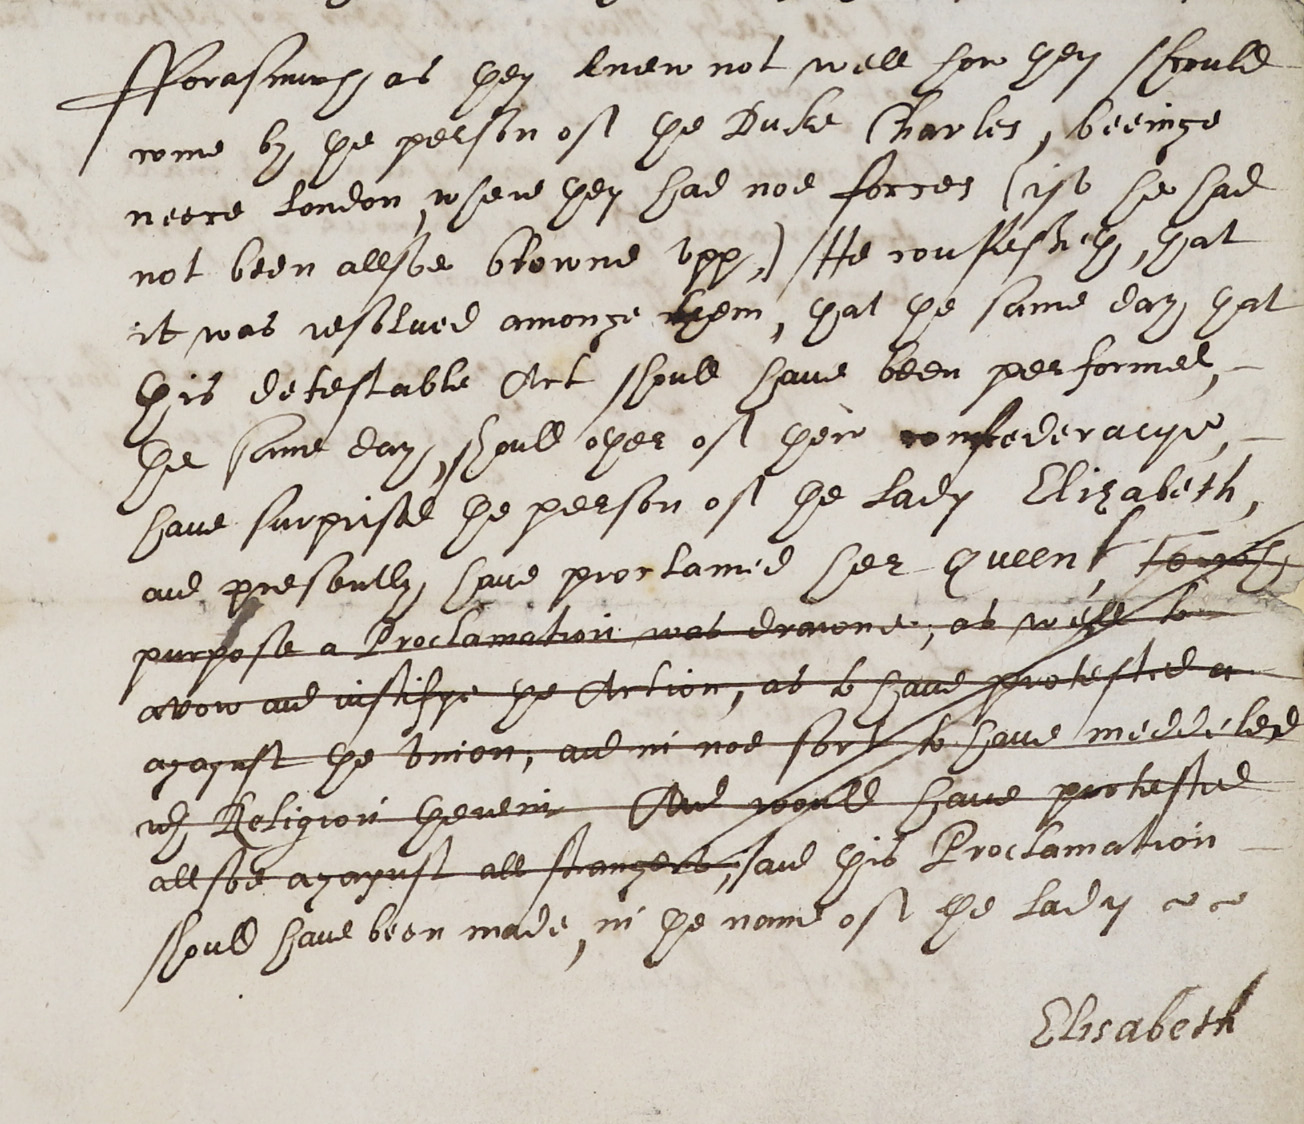 fforasmuch as they knew not well how they should
come by the person of the Duke Charles, beeinge
neere London, where they had noe forces (if he had
not been allsoe blowne vpp,) He confesseth, that
it was resolued amonge them, that the same day that
this detestable Act should haue been performed,
the same day, should other of their confederacye,
haue surprised the person of the Lady Elizabeth,
and presently haue proclaimed her Queen, to wch
purpose a Proclamation was drawne, as well to
avow and iustifye the Action, as to haue protested
agaynst the Vnion, and in noe sort to haue meddeled
wth Religion therein And would haue protested
allsoe agaynst all strangers, and this Proclamation
should haue been made, in the name of the Lady
Elisabeth